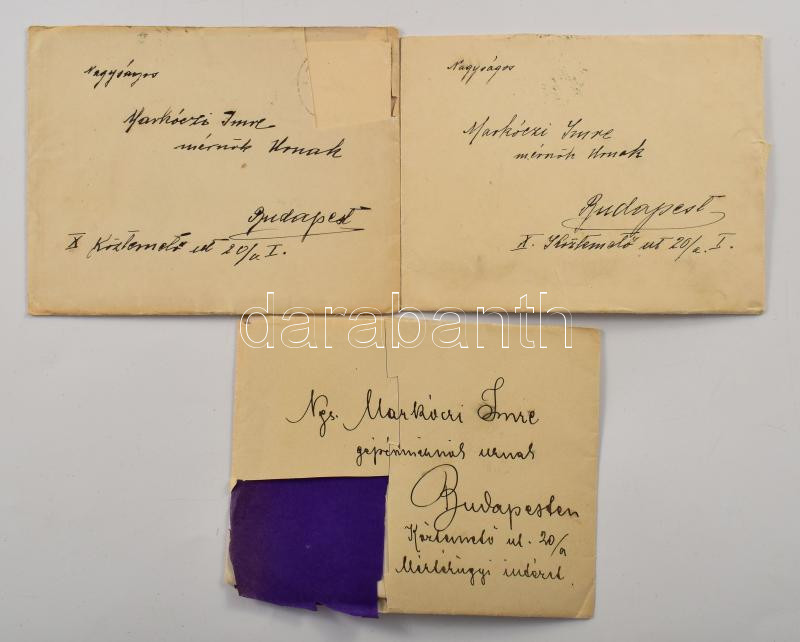 Nagyságos
Markóczi Imre
mérnök Urnak
Budapest
X Köztemető ut 20/a I.
Nagyságos
Markóczi Imre
mérnök Urnak
Budapest
X. Köztemető ut 20/a. I.
darabanth
Ngs. Markóczi Imre
gépészmérnök urnak
Budapesten
Köztemető ut. 20/a
Mértékügyi intézet.